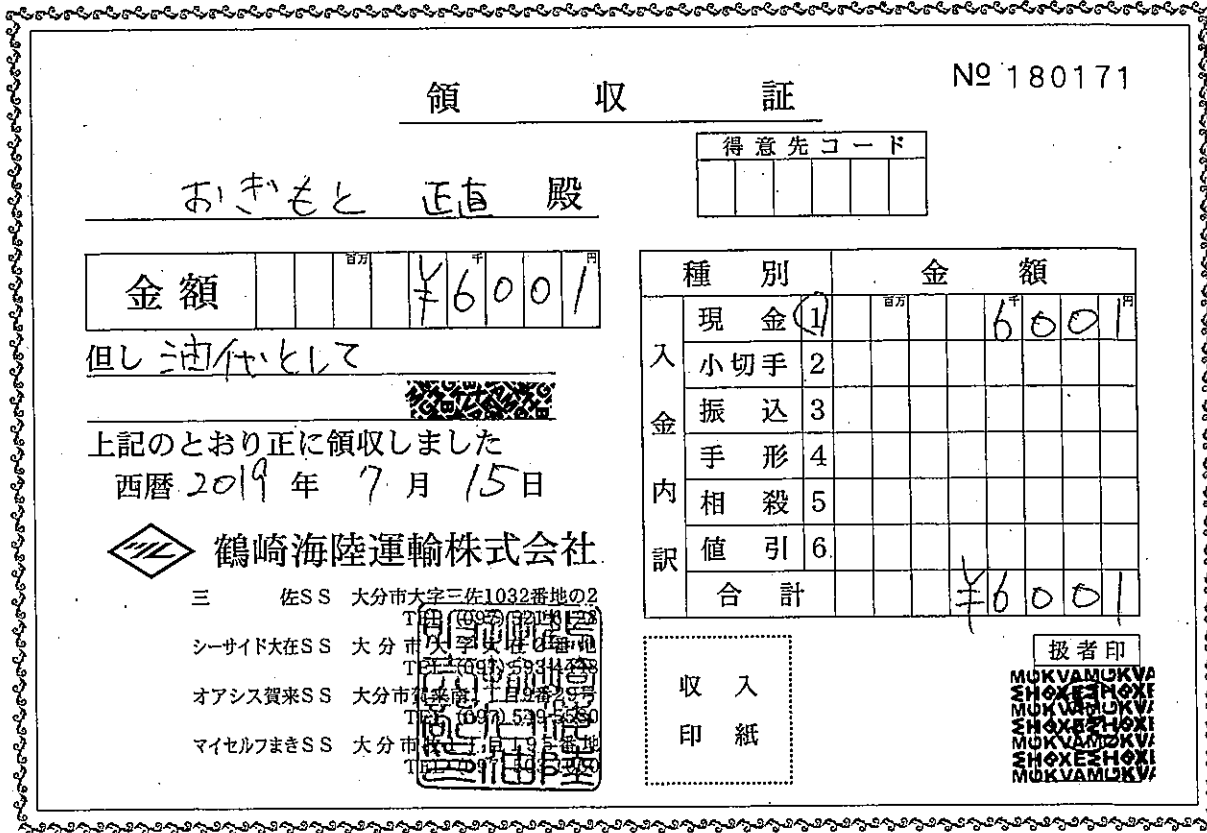 № 180171
領収証
得意先コード
おぎもと 正直 殿
金額 百万 千 円 ¥6001
但し 油代として
上記のとおり正に領収しました
西暦 2019 年 7 月 15 日
鶴崎海陸運輸株式会社
三佐SS 大分市大字三佐1032番地の2
TEL (097)
シーサイド大在SS 大分市大字
TEL (097) 593
オアシス賀来SS 大分市賀来南1丁目9番29号
TEL (097)
マイセルフまきSS 大分市
TEL (097)
種別 金額
入金内訳
現金 1 百万 千 円 6001
小切手 2
振込 3
手形 4
相殺 5
値引 6
合計 ¥6001
収入
印紙
扱者印